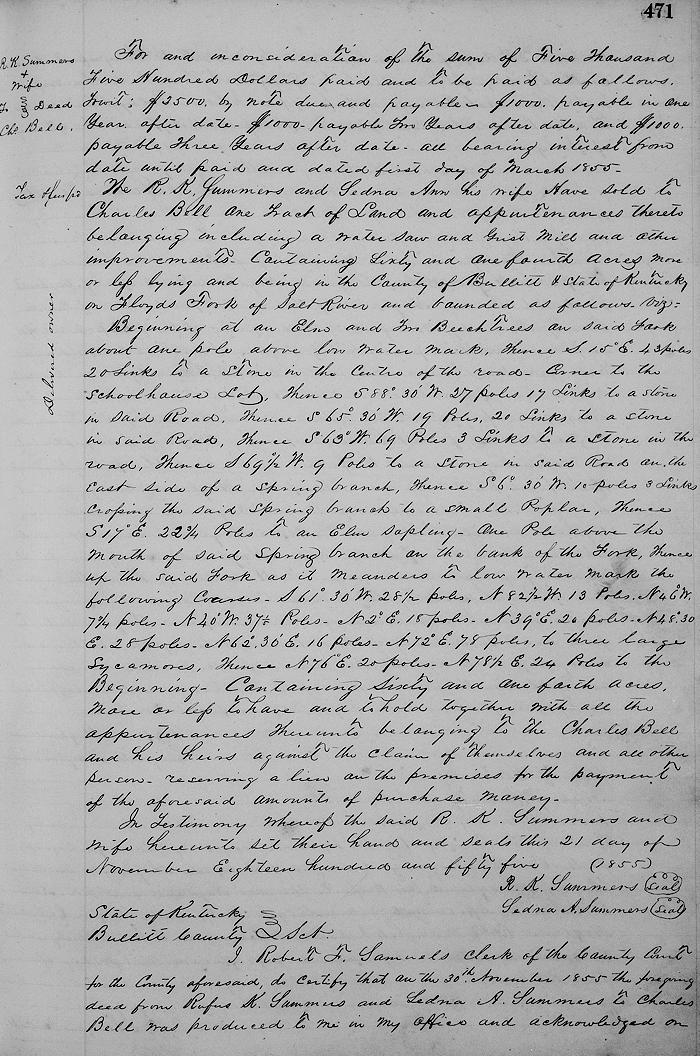 471
R. K. Summers
+
Wife
To Deed
Chs Bell.
For and inconsideration of the sum of Five Thousand
Five Hundred Dollars paid and to be paid as follows.
Towit; $2500. by note due and payable - $1000. payable in one
Year after date - $1000 - payable Two Years after date, and $1000.
payable Three Years after date - all bearing interest from
date until paid and dated first day of March 1855 -
Tax
We R. K. Summers and Sedna Ann his wife Have sold to
Charles Bell one Tract of Land and appurtenances thereto
belonging including a water saw and Grist Mill and other
improvements. Containing Sixty and one fourth Acres more
or less lying and being in the County of Bullitt & State of Kentucky
on Floyds Fork of Salt River and bounded as follows - Viz -
Delivered owner
Beginning at an Elm and Two Beech trees on said Fork
about one pole above low water mark, Thence S. 15° E. 43 poles
20 Links to a stone in the Centre of the road - Corner to the
Schoolhouse Lot, Thence S 88° 30' W. 27 poles 17 Links to a stone
in said Road, Thence S 65° 30' W. 19 Poles, 20 Links to a stone
in said Road, Thence S 63° W. 69 Poles 3 Links to a stone in the
road, Thence S 69½ W. 9 Poles to a stone in said Road on the
East side of a Spring branch, Thence S 6° 30' W. 10 poles 3 Links
Crossing the said Spring branch to a small Poplar, Thence
S 17° E. 22¾ Poles to an Elm sapling - One Pole above the
mouth of said Spring branch on the bank of the Fork, Thence
up the said Fork as it meanders to low water mark the
following Courses - S 61° 30' W. 28½ poles, N 82½ W. 13 Poles. N 46° W.
7¾ poles - N 40° W. 37½ Poles - N 2° E. 18 poles - N 39° E. 20 poles - N 48° 30
E. 28 poles - N 62° 30' E. 16 Poles - N 72° E. 78 poles, to three large
Sycamores, Thence N 76° E. 20 poles - N 78½ E. 24 Poles to the
Beginning - Containing Sixty and one forth acres.
More or less to have and to hold together with all the
appurtenances thereunto belonging to the Charles Bell
and his heirs against the claim of themselves and all other
person - reserving a lien on the premises for the payment
of the aforesaid amounts of purchase money -
In Testimony whereof the said R. K. Summers and
wife hereunto set their hand and seals this 21 day of
November Eighteen hundred and fifty five (1855)
R. K. Summers (Seal)
Sedna A. Summers (Seal)
State of Kentucky
Bullitt County Sct.
I, Robert F. Samuels Clerk of the County Court
for the County aforesaid, do certify that on the 30th November 1855 the foregoing
deed from Rufus K. Summers and Sedna A. Summers to Charles
Bell was produced to me in my office and acknowledged on